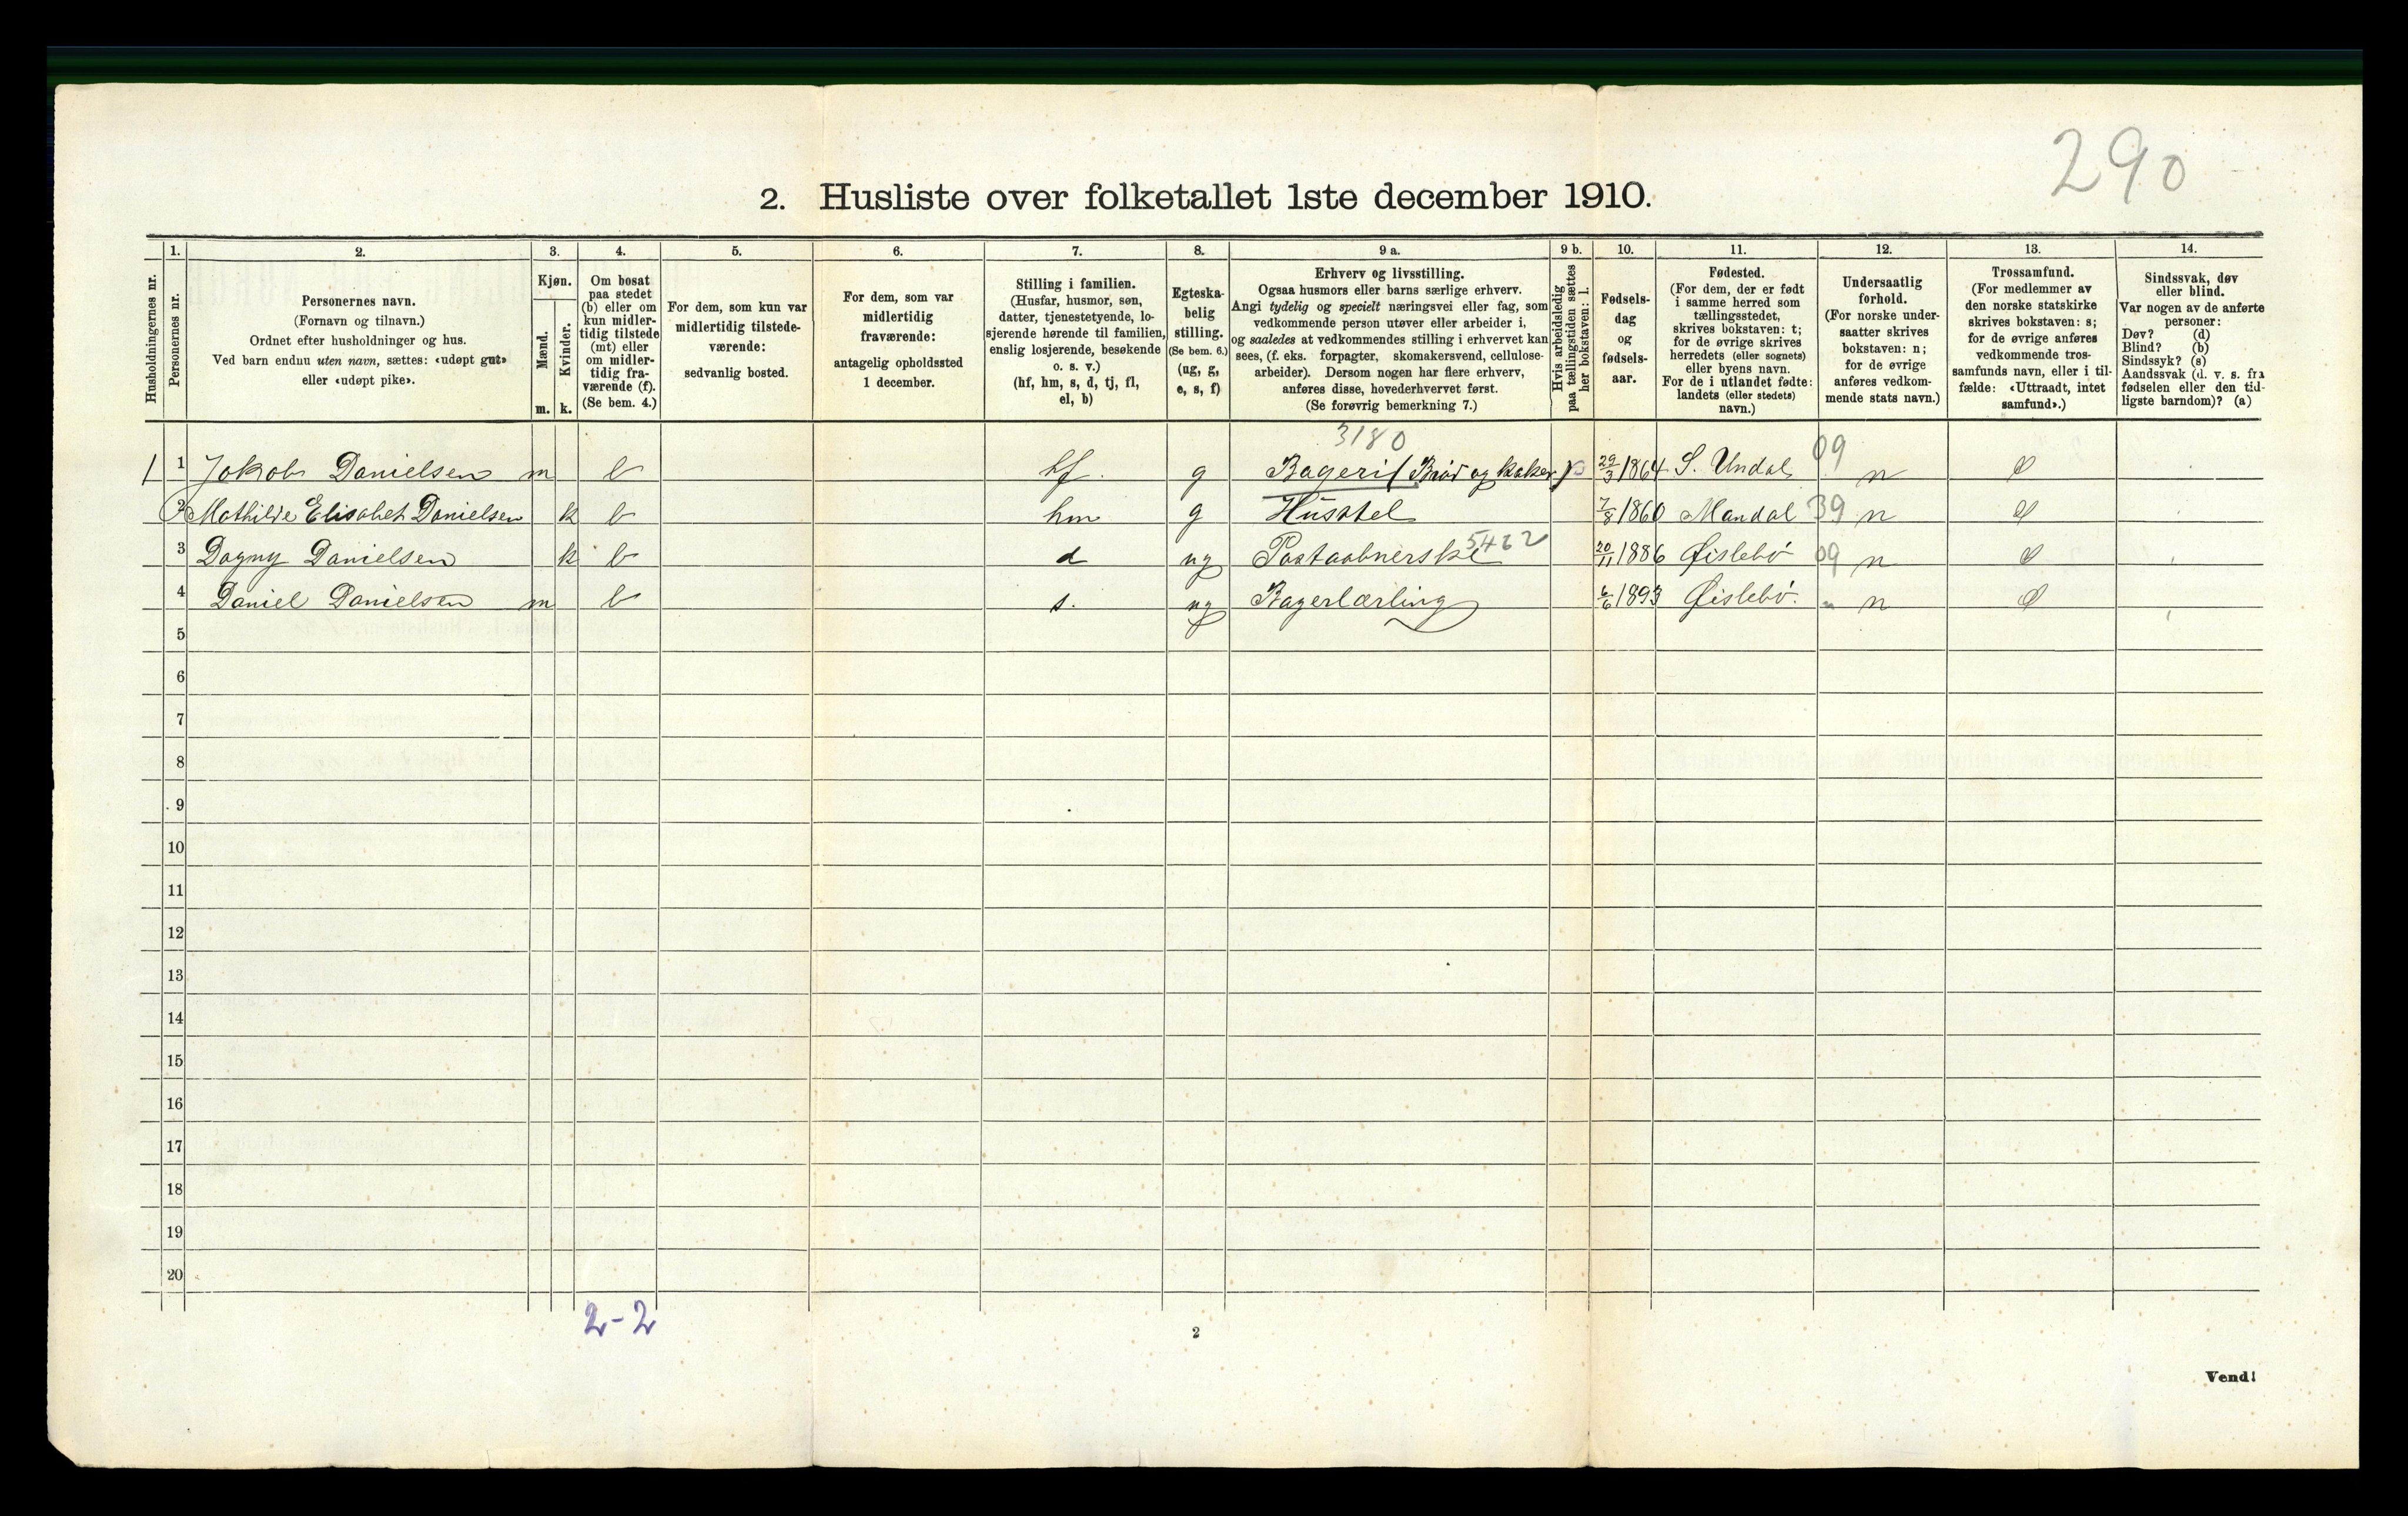 290
2. Husliste over folketallet 1ste december 1910.
Husholdningernes nr.
1.
Personernes nr.
2.
Personernes navn.
(Fornavn og tilnavn.)
Ordnet efter husholdninger og hus.
Ved barn endnu uten navn, sættes: «udøpt gut»
eller «udøpt pike».
3.
Kjøn.
Mænd.
Kvinder.
m. k.
4.
Om bosat
paa stedet
(b) eller om
kun midler-
tidig tilstede
(mt) eller
om midler-
tidig fra-
værende (f).
(Se bem. 4.)
5.
For dem, som kun var
midlertidig tilstede-
værende:
sedvanlig bosted.
6.
For dem, som var
midlertidig
fraværende:
antagelig opholdssted
1 december.
7.
Stilling i familien.
(Husfar, husmor, søn,
datter, tjenestetyende, lo-
sjerende hørende til familien,
enslig losjerende, besøkende
o. s. v.)
(hf, hm, s, d, tj, fl,
el, b)
8.
Egteska-
belig
stilling.
(Se bem. 6.)
(ug, g,
e, s, f)
9 a.
Erhverv og livsstilling.
Ogsaa husmors eller barns særlige erhverv.
Angi tydelig og specielt næringsvei eller fag, som
vedkommende person utøver eller arbeider i,
og saaledes at vedkommendes stilling i erhvervet kan
sees, (f. eks. forpagter, skomakersvend, cellulose-
arbeider). Dersom nogen har flere erhverv,
anføres disse, hovederhvervet først.
(Se forøvrig bemerkning 7.)
9 b.
Hvis arbeidsledig
paa tællingstiden sættes
her bokstaven: l.
10.
Fødsels-
dag
og
fødsels-
aar.
11.
Fødested.
(For dem, der er født
i samme herred som
tællingsstedet,
skrives bokstaven: t;
for de øvrige skrives
herredets (eller sognets)
eller byens navn.
For de i utlandet fødte:
landets (eller stedets)
navn.)
12.
Undersaatlig
forhold.
(For norske under-
saatter skrives
bokstaven: n;
for de øvrige
anføres vedkom-
mende stats navn.)
13.
Trossamfund.
(For medlemmer av
den norske statskirke
skrives bokstaven: s;
for de øvrige anføres
vedkommende tros-
samfunds navn, eller i til-
fælde: «Uttraadt, intet
samfund».)
14.
Sindssvak, døv
eller blind.
Var nogen av de anførte
personer:
Døv? (d)
Blind? (b)
Sindssyk? (s)
Aandssvak (d. v. s. fra
fødselen eller den tid-
ligste barndom)? (a)
3180
1 1 Jakob Danielsen m b hf. g Bageri (Brød og kaker) 29/3 1864 S. Undal 09 n
2 Mathilde Elisabet Danielsen k b hm g Husstel 7/8 1860 Mandal 39 n
3 Dagny Danielsen k b d ug Postaabnerske 5462 20/11 1886 Øislebö 09 n
4 Daniel Danielsen m b s. ug Bagerlærling 6/6 1893 Øislebö. n
5
6
7
8
9
10
11
12
13
14
15
16
17
18
19
20
2-2
2
Vend!